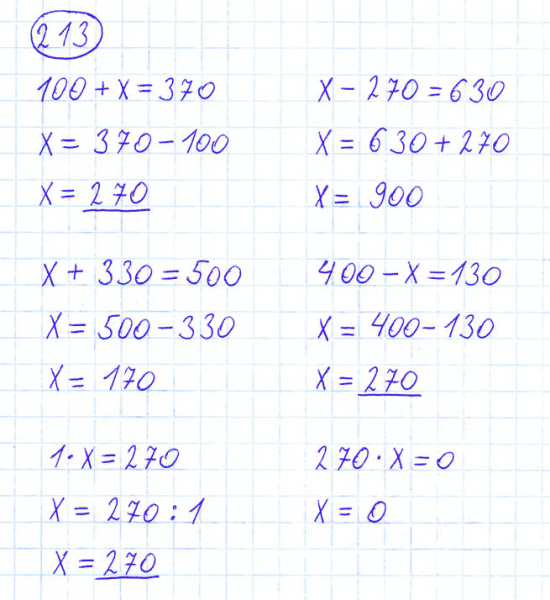 213
100 + x = 370
x = 370 - 100
x = 270
x - 270 = 630
x = 630 + 270
x = 900
x + 330 = 500
x = 500 - 330
x = 170
400 - x = 130
x = 400 - 130
x = 270
1 · x = 270
x = 270 : 1
x = 270
270 · x = 0
x = 0